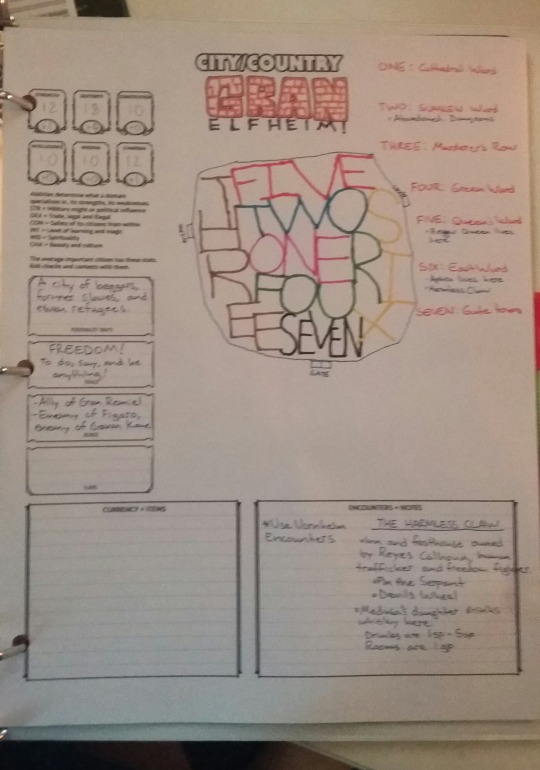 CITY/COUNTRY
GRAN
ELFHEIM!
STRENGTH
12
+1
18
10
10
10
12
+1
Ability determine what a domain
specializes in, its strengths, its weaknesses.
STR = Military might or political influence
DEX = Trade, legal and illegal
CON = Safety of its citizens from within
INT = Level of learning and magic
WIS = Spirituality
CHA = Beauty and culture
The average important citizen has these stats.
Roll checks and contests with them.
A city of beggars,
former slaves, and
elven refugees.
PERSONALITY TRAITS
FREEDOM!
To do, say, and be
anything!
IDEALS
-Ally of Gran Remiel
-Enemy of Figaro,
enemy of
BONDS
FLAWS
FIVE
TWO
ONE
FOUR
SEVEN
THREE
SIX
GATE
GATE
GATE
ONE: Cathedral Ward
TWO: Ward
Abandoned Dungeons
THREE: Murderer's Row
FOUR: Green Ward
FIVE: Queen's Ward
Beggar Queen lives
here
SIX: East Ward
lives here
Harmless Claw
SEVEN: Gate town
CURRENCY + ITEMS
ENCOUNTERS + NOTES
*Use Vornheim
Encounters
THE HARMLESS CLAW
Inn and fasthouse owned
by Reyes Calhoun, human
trafficker and freedom fighter
Pin the Serpent
Devils Wheel
Medusa's daughter drinks
whiskey here
Drinks are 1sp - 5sp
Rooms are 1gp